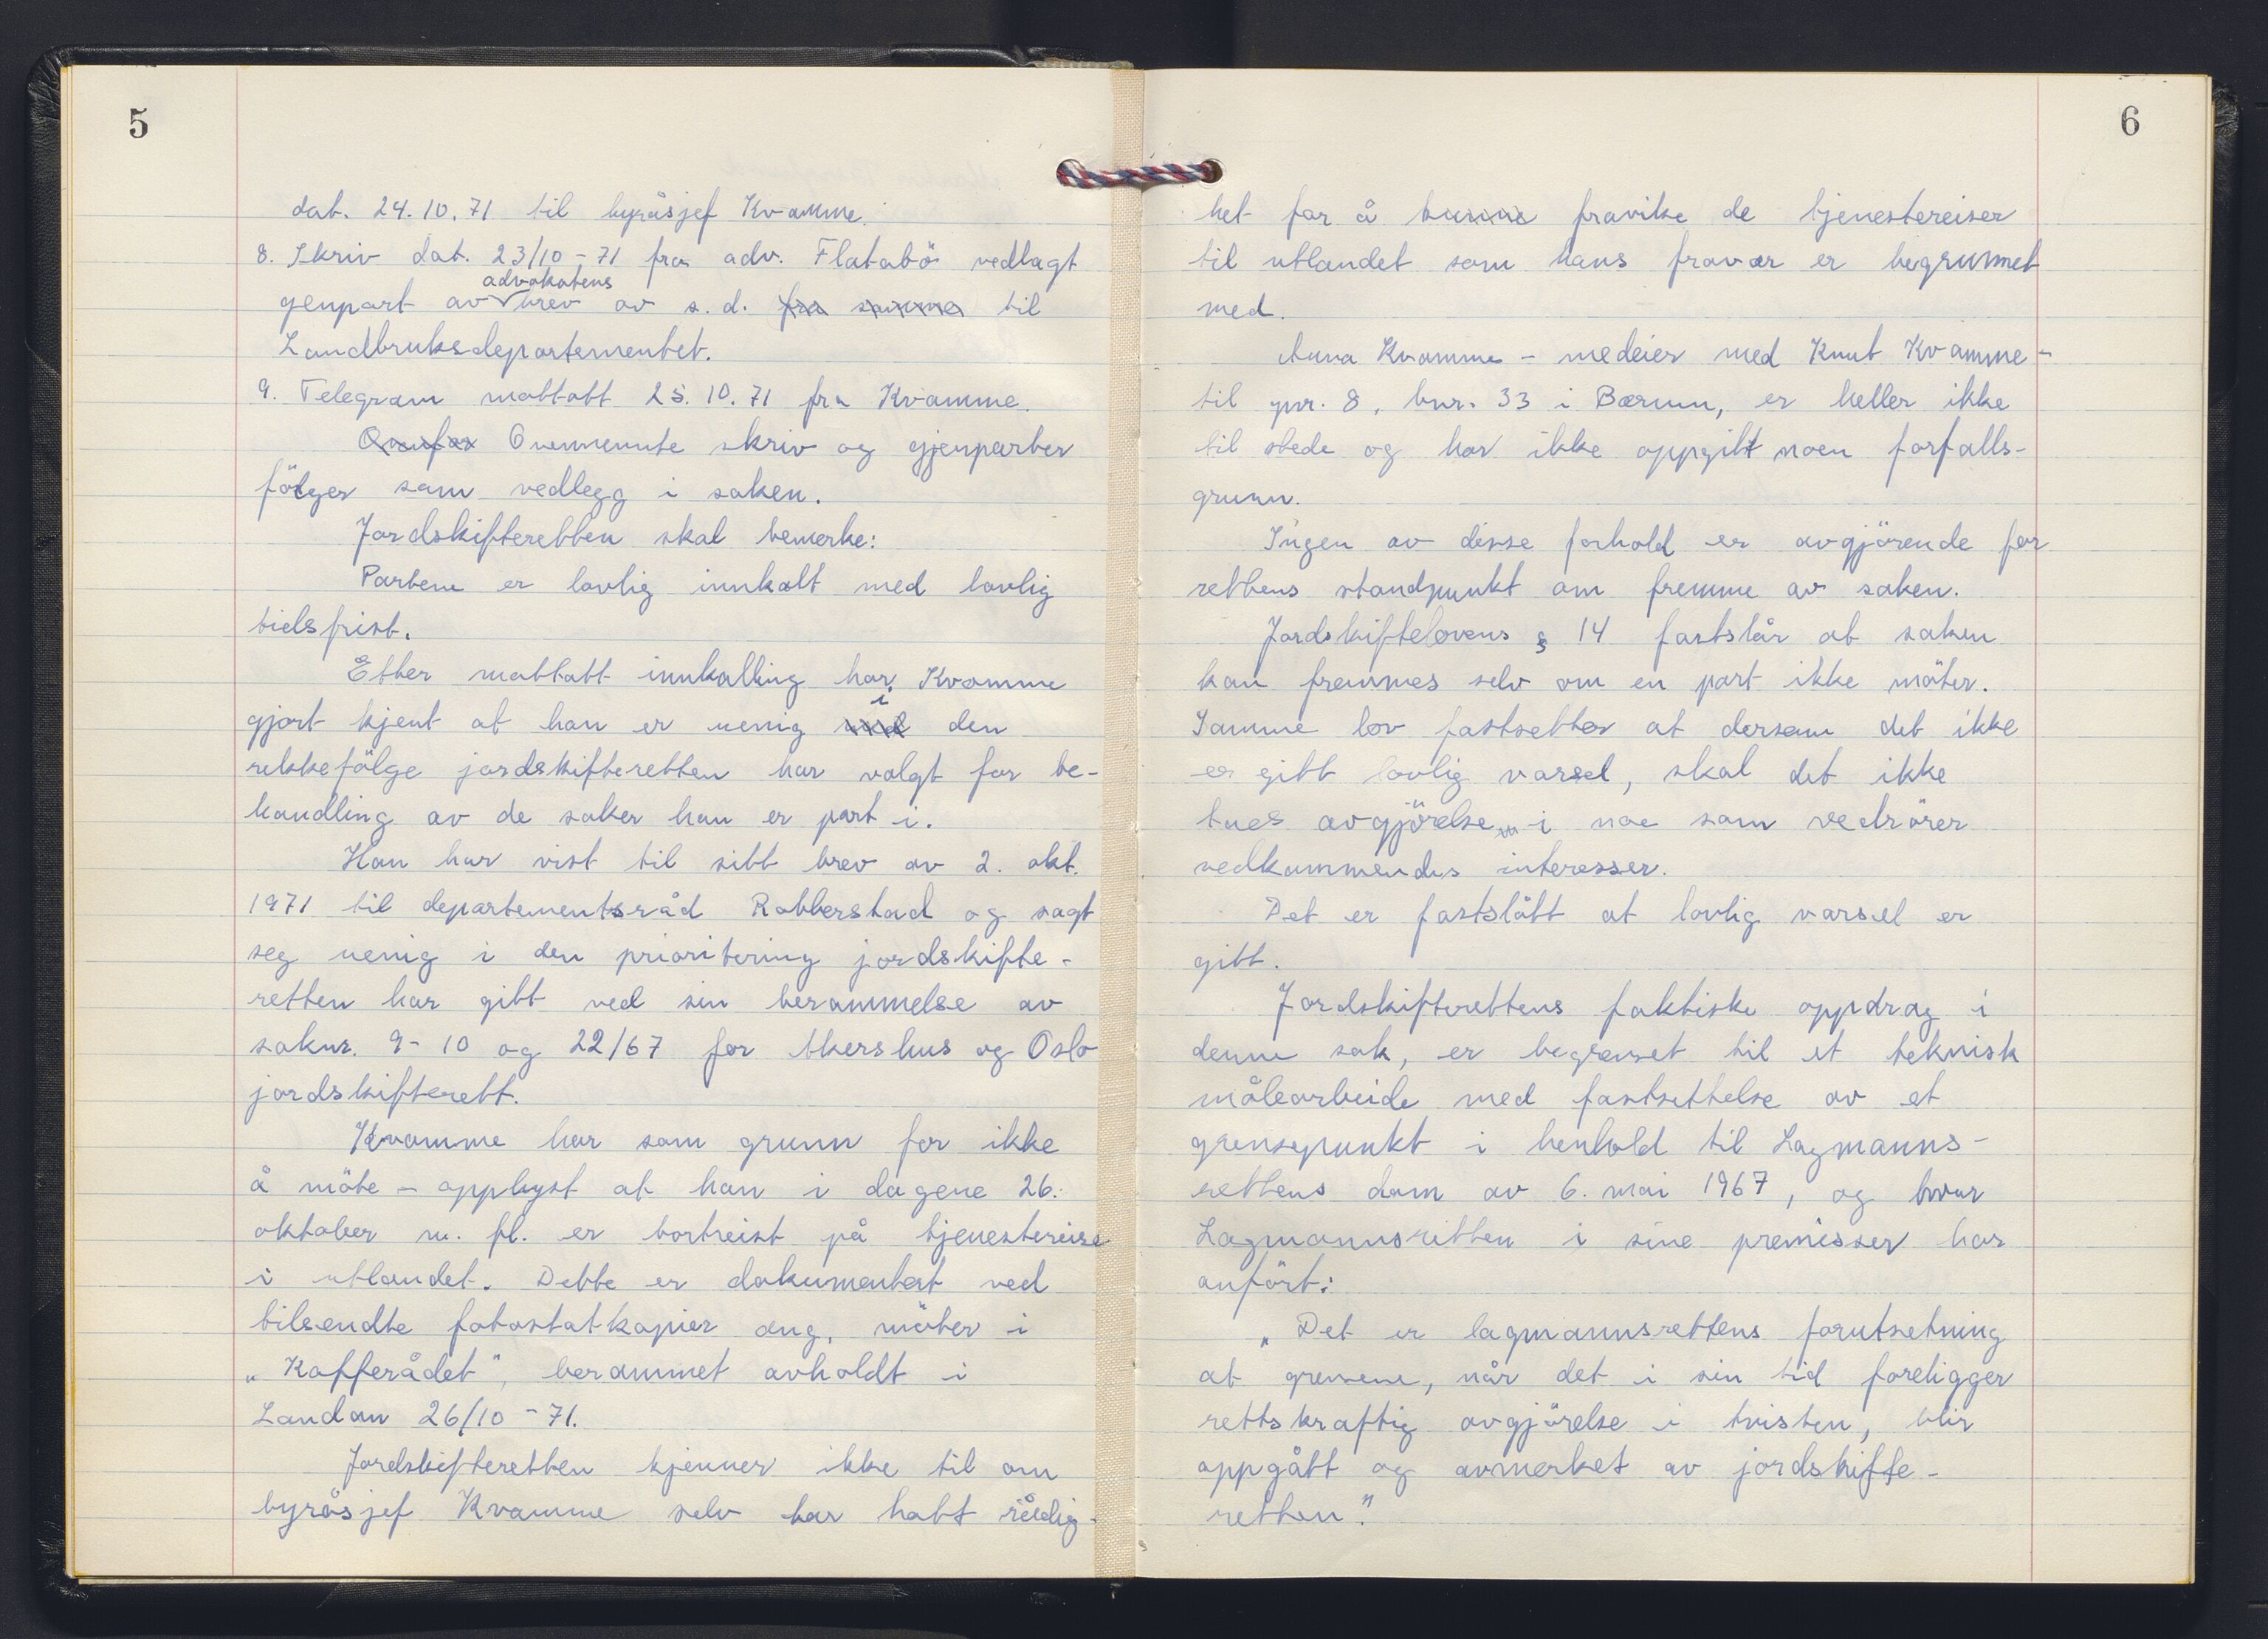 5
dat. 24.10.71 til byråsjef Kvamme.
8. Skriv dat. 23/10-71 fra adv. Flatabö vedlagt
advokatens
genpart av brev av s.d. fra samme til
Landbruksdepartementet.
9. Telegram mottatt 25.10.71 fra Kvamme.
Ovenfor Ovennevnte skriv og gjenparter
fölger som vedlegg i saken.
Jordskifteretten skal bemerke:
Partene er lovlig innkalt med lovlig
tidsfrist.
Etter mottatt innkalling har Kvamme
i
gjort kjent at han er uenig med den
rekkefölge jordskifteretten har valgt for be-
handling av de saker han er part i.
Han har vist til sitt brev av 2. okt.
1971 til departementsråd Robberstad og sagt
seg uenig i den prioritering jordskifte-
retten har gitt ved sin berammelse av
saknr. 9-10 og 22/67 for Akershus og Oslo
jordskifterett.
Kvamme har som grunn for ikke
å möte - opplyst at han i dagene 26.
oktober m. fl. er bortreist på tjenestereise
i utlandet. Dette er dokumentert ved
tilsendte fotostatkopier ang. möter i
„Kafferådet", berammet avholdt i
London 26/10-71.
Jordskifteretten kjenner ikke til om
byråsjef Kvamme selv har hatt rådig-
6
het for å kunne fravike de tjenestereiser
til utlandet som hans fravær er begrunnet
med.
Anna Kvamme - medeier med Knut Kvamme -
til gnr. 8, bnr. 33 i Bærum, er heller ikke
til stede og har ikke oppgitt noen forfalls-
grunn.
Ingen av disse forhold er avgjörende for
rettens standpunkt om fremme av saken.
Jordskiftelovens § 14 fastslår at saken
kan fremmes selv om en part ikke möter.
Samme lov fastsetter at dersom det ikke
er gitt lovlig varsel, skal det ikke
taes avgjörelse i noe som vedrörer
vedkommendes interesser.
Det er fastslått at lovlig varsel er
gitt.
Jordskifterettens faktiske oppdrag i
denne sak, er begrenset til et teknisk
målearbeide med fastsettelse av et
grensepunkt i henhold til Lagmanns-
rettens dom av 6. mai 1967, og hvor
Lagmannsretten i sine premisser har
anfört:
„Det er lagmannsrettens forutsetning
at grensene, når det i sin tid foreligger
rettskraftig avgjörelse i tvisten, blir
oppgått og avmerket av jordskifte-
retten."